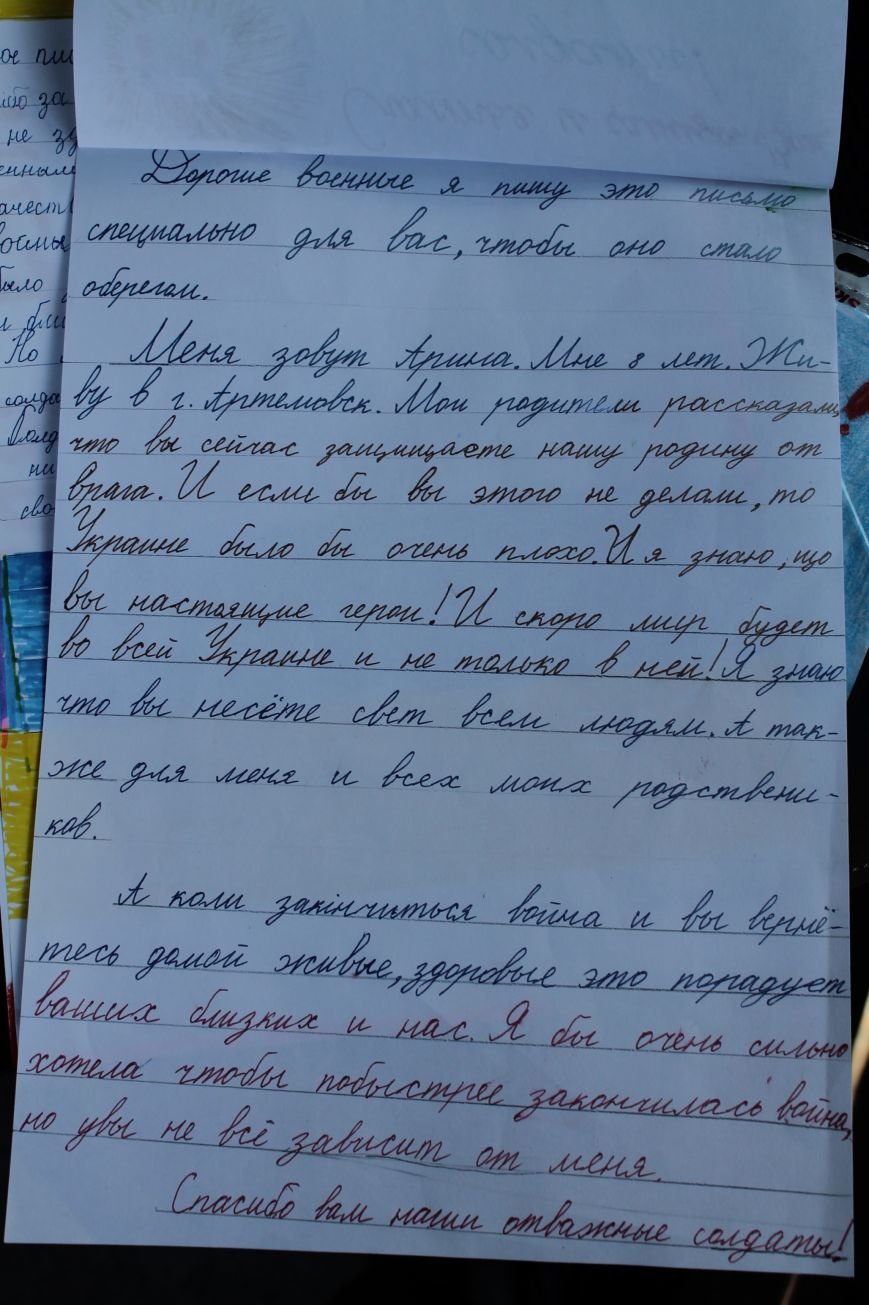 Дорогие военные я пишу это письмо
специально для вас, чтобы оно стало
оберегом.
Меня зовут Арина. Мне 8 лет. Жи-
ву в г. Артемовск. Мои родители рассказали,
что вы сейчас защищаете нашу родину от
врага. И если бы вы этого не делали, то
Украине было бы очень плохо. И я знаю, що
вы настоящие герои! И скоро мир будет
во всей Украине и не только в ней! Я знаю
что вы несёте свет всем людям. А так-
же для меня и всех моих родствени-
ков.
А коли закінчиться война и вы вернё-
тесь домой живые, здоровые это порадует
ваших близких и нас. Я бы очень сильно
хотела чтобы побыстрее закончилась война,
но увы не всё зависит от меня.
Спасибо вам наши отважные солдаты!